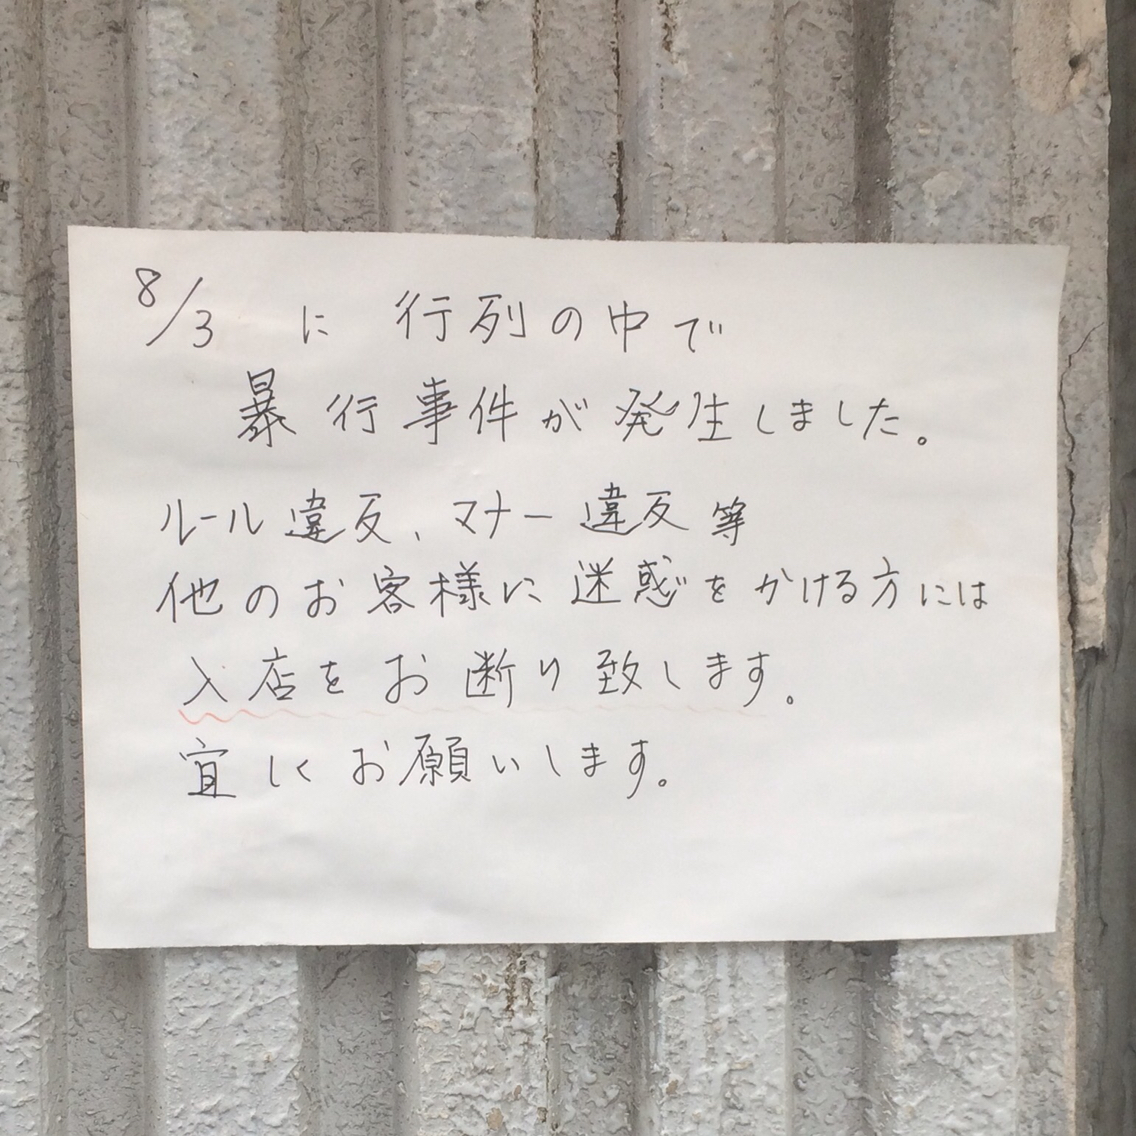 8/3 に 行列の中で
暴行事件が発生しました。
ルール違反、マナー違反等
他のお客様に迷惑をかける方には
入店をお断り致します。
宜しくお願いします。